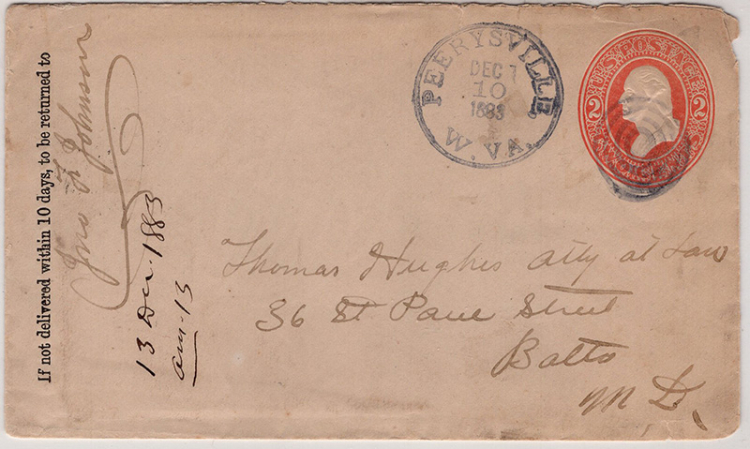 If not delivered within 10 days, to be returned to
Jno F Johnson
13 Dec. 1883
ans. 13
PEERYSVILLE
DEC
10
1883
W. VA.
U.S. POSTAGE
2 2
Thomas Hughes Atty at Law
36 St Paul Street
Balto
M D,